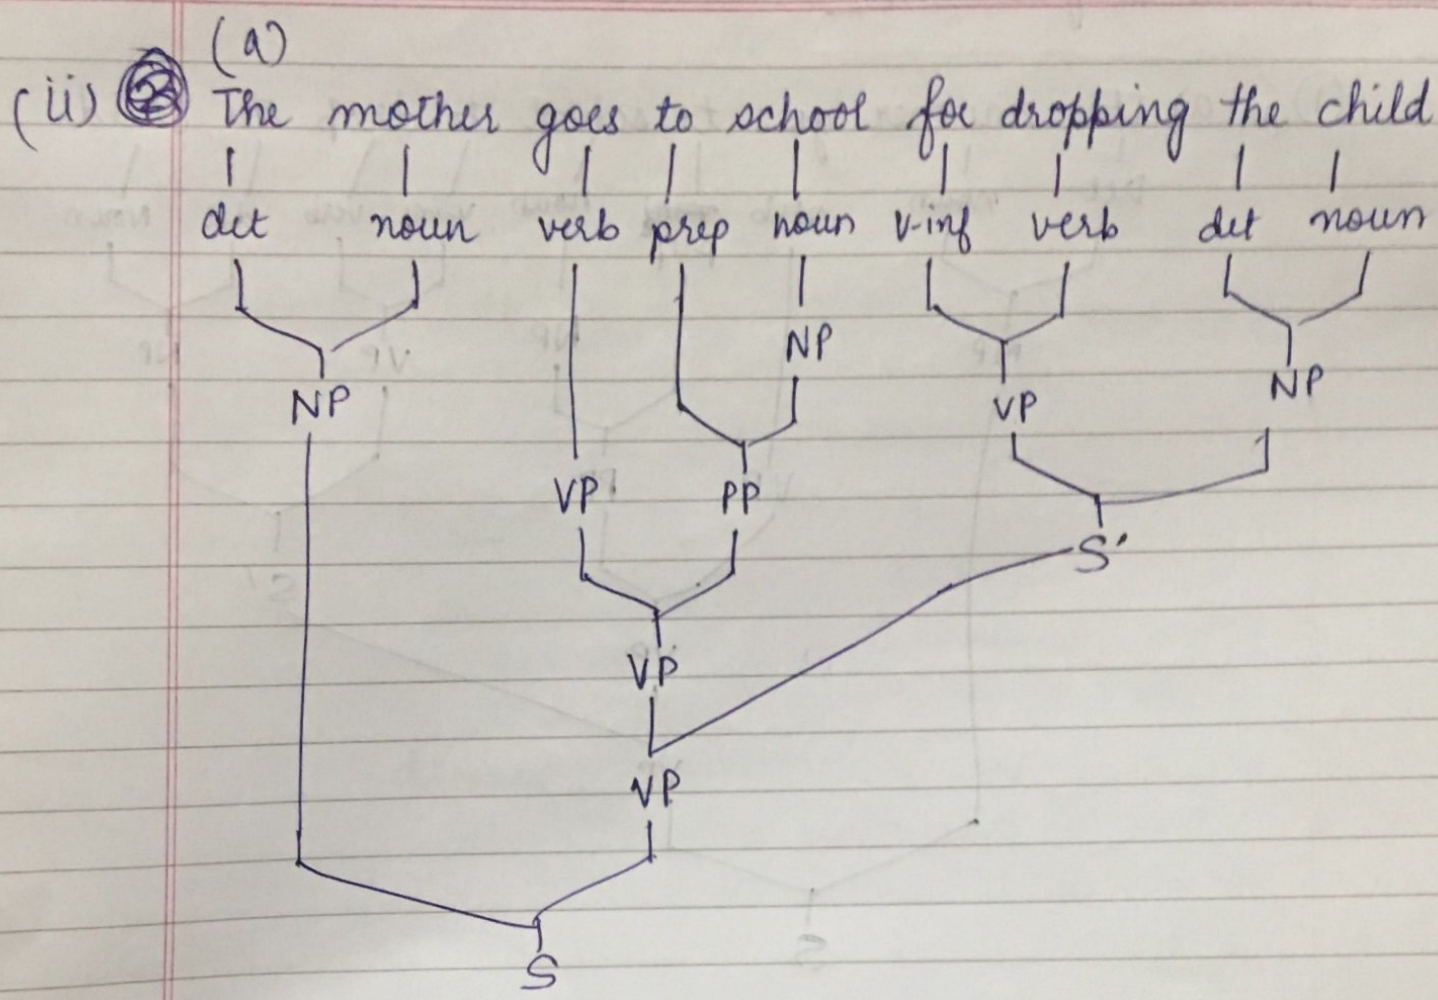 (a)
(ii) The mother goes to school for dropping the child
det noun verb prep noun v-inf verb det noun
NP
NP VP NP
VP PP
S'
VP
VP
S